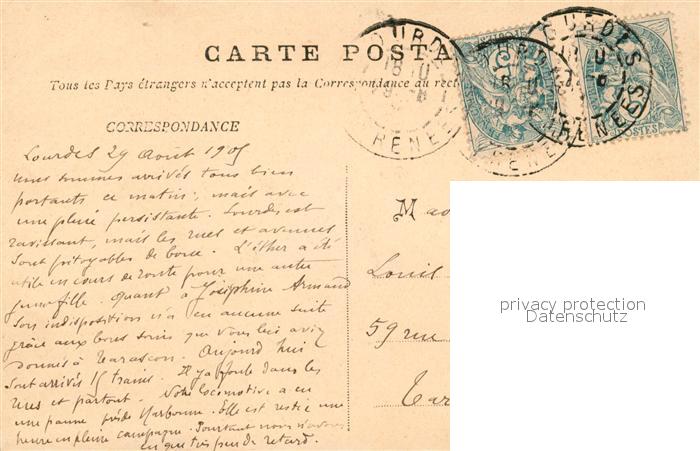 CARTE POSTA
Tous les Pays étrangers n'acceptent pas la Correspondance au rect
CORRESPONDANCE
Lourdes 29 Août 1905
Nous sommes arrivés tous bien
portants ce matin; mais avec
une pluie persistante. Lourdes est
ravissant, mais les rues et avenues
sont pitoyables de boue. L'éther a été
utile en cours de route pour une autre
jeune fille. Quant à Joséphine Armand
son indisposition n'a eu aucune suite
grâce aux bons soins que vous lui avez
donnés à Tarascon. Aujourd'hui
sont arrivés 15 trains. Il y a foule dans les
rues et partout. Notre locomotive a eu
une panne près de Narbonne. Elle est restée une
heure en pleine campagne. Pourtant nous n'avons
eu que très peu de retard.
Mad
Louis
59 rue
Tar
privacy protection
Datenschutz
LOURDES
RENEES
POSTES